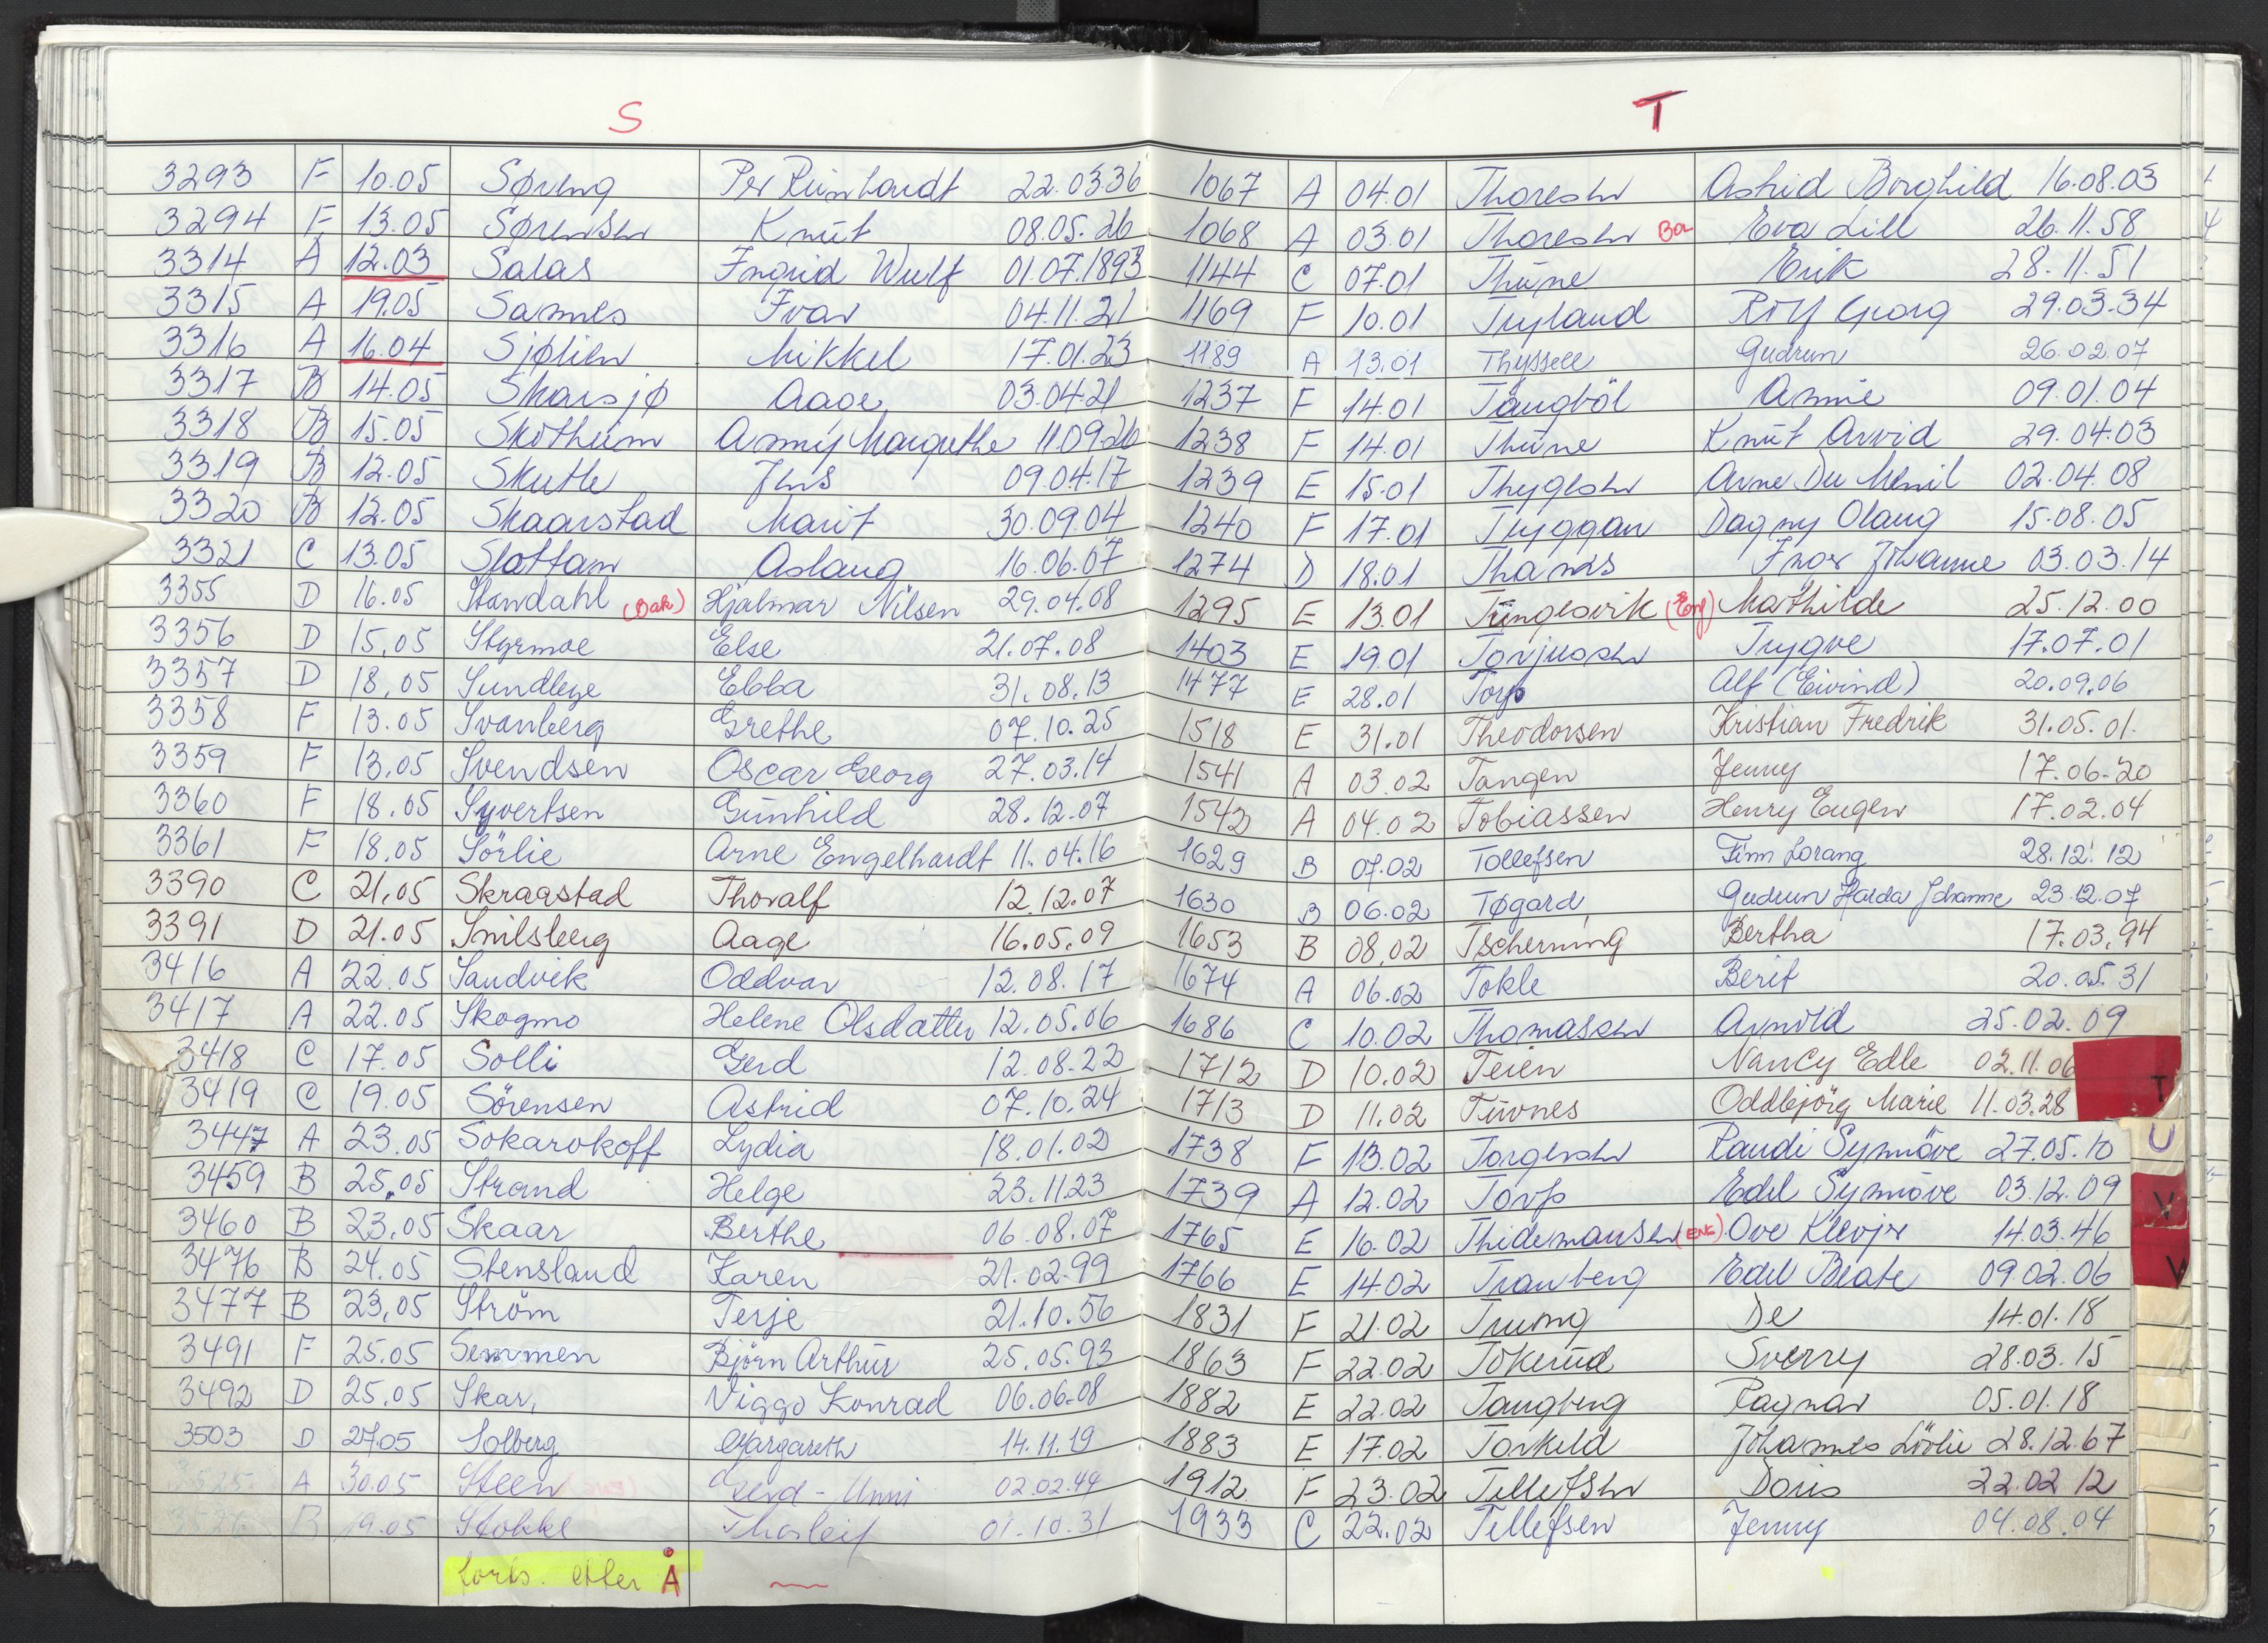 S
3293 F 10.05 Søreng Per Reinhardt 22.03.36
3294 F 13.05 Sørensen Knut 08.05.26
3314 A 12.03 Salas Ingrid Wulf 01.07.1893
3315 A 19.05 Sannes Ivar 04.11.21
3316 A 16.04 Sjølien Mikkel 17.01.23
3317 B 14.05 Skarsjø Aage 03.04.21
3318 B 15.05 Skotheim Anny Margrethe 11.09.26
3319 B 12.05 Skutle Jens 09.04.17
3320 B 12.05 Skaarstad Marit 30.09.04
3321 C 13.05 Slottam Aslaug 16.06.07
3355 D 16.05 Standahl (Bak) Hjalmar Nilsen 29.04.08
3356 D 15.05 Styrmoe Else 21.07.08
3357 D 18.05 Sundbye Ebba 31.08.13
3358 F 13.05 Svanberg Grethe 07.10.25
3359 F 13.05 Svendsen Oscar Georg 27.03.14
3360 F 18.05 Syvertsen Gunhild 28.12.07
3361 F 18.05 Sörlie Arne Engelhardt 11.04.16
3390 C 21.05 Skraastad Thoralf 12.12.07
3391 D 21.05 Snilsberg Aage 16.05.09
3416 A 22.05 Sandvik Oddvar 12.08.17
3417 A 22.05 Skogmo Helene Olsdatter 12.05.06
3418 C 17.05 Solli Gerd 12.08.22
3419 C 19.05 Sörensen Astrid 07.10.24
3447 A 23.05 Sokarokoff Lydia 18.01.02
3459 B 25.05 Strand Helge 23.11.23
3460 B 23.05 Skaar Berthe 06.08.07
3476 B 24.05 Stensland Karen 21.02.99
3477 B 23.05 Ström Terje 21.10.56
3491 F 25.05 Semmen Björn Arthur 25.05.93
3492 D 25.05 Skar, Viggo Konrad 06.06.08
3503 D 27.05 Solberg Margareth 14.11.19
3525 A 30.05 Steen Gerd - Unni 02.02.44
B 19.05 Stokke Thorleif 01.10.31
forts. etter Å
T
1067 A 04.01 Thoresen Astrid Borghild 16.08.03
1068 A 03.01 Thoresen Eva Lill 26.11.58
1144 C 07.01 Thune Erik 28.11.51
1169 F 10.01 Tryland Rolf Georg 29.03.34
1189 A 13.01 Thyssell Gudrun 26.02.07
1237 F 14.01 Tångböl Annie 09.01.04
1238 F 14.01 Thune Knut Arvid 29.04.03
1239 E 15.01 Thygesen Arne Du Menil 02.04.08
1240 F 17.01 Tryggan Dagny Olaug 15.08.05
1274 D 18.01 Thanes Inger Johanne 03.03.14
1295 E 13.01 Tunglevik (Eng) Mathilde 25.12.00
1403 E 19.01 Torjussen Trygve 17.07.01
1477 E 28.01 Torp Alf (Eivind) 20.09.06
1518 E 31.01 Theodorsen Kristian Fredrik 31.05.01.
1541 A 03.02 Tangen Jenny 17.06.20
1542 A 04.02 Tobiassen Henry Eugen 17.02.04
1629 B 07.02 Tollefsen Finn Lorang 28.12.12
1630 B 06.02 Tøgard, Gudrun Harda Johanne 23.12.07
1653 B 08.02 Tscherning Bertha 17.03.94
1674 A 06.02 Tokle Berit 20.05.31
1686 C 10.02 Thomassen Arnold 25.02.09
1712 D 10.02 Teien Nancy Edle 02.11.06
1713 D 11.02 Tuvnes Oddbjörg Marie 11.03.28
T
1738 F 13.02 Torgersen Randi Synnöve 27.05.10
U
1739 A 12.02 Torp Edel Synnöve 03.12.09
V
1765 E 16.02 Thidemansen (ENG) Ove Klevjer 14.03.46
1766 E 14.02 Tranberg Edel Beate 09.02.06
V
1831 F 21.02 Truong De 14.01.18
1863 F 22.02 Tokerud Sverry 28.03.15
1882 E 22.02 Tangberg Ragnar 05.01.18
1883 E 17.02 Torkeld Johannes Lövlie 28.12.67
1912 F 23.02 Tellefsen Doris 22.02.12
1933 C 22.02 Tellefsen Jenny 04.08.04